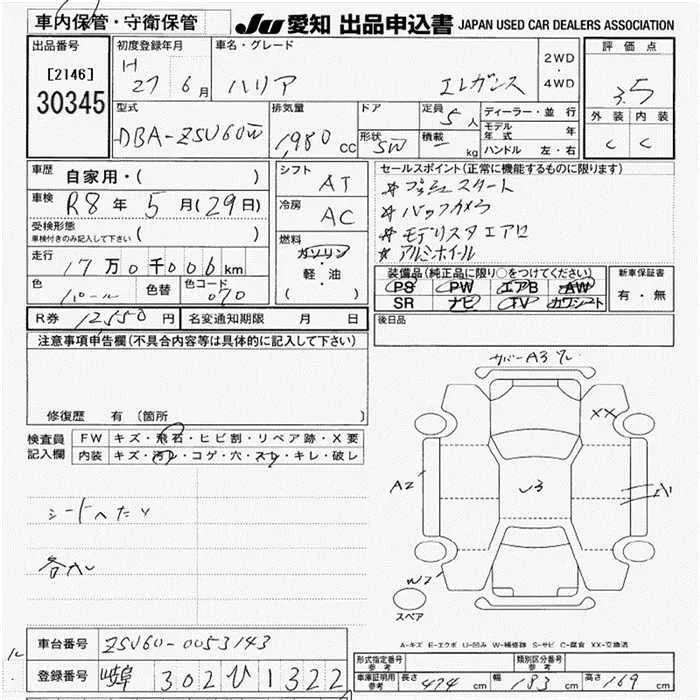 車内保管・守衛保管
JU 愛知 出品申込書 JAPAN USED CAR DEALERS ASSOCIATION
出品番号
[2146]
30345
初度登録年月
H
27 6月
車名・グレード
ハリア エレガンス
2WD
・
4WD
評価点
3.5
外装 内装
C C
型式
DBA-ZSU60W
排気量
1,980 cc
ドア
形状 5W
定員 5人
積載 kg
ディーラー・並行
モデル年式 年
ハンドル 左・右
車歴 自家用・( )
車検 R8年5月(29日)
受検形態
車検付きのみ記入して下さい ( )
走行 17万0千006km
色 パール 色替 色コード 070
シフト AT
冷房 AC
燃料
ガソリン
・
軽・油
( )
セールスポイント(正常に機能するものに限ります)
* プッシュスタート
* バックカメラ
* モデリスタエアロ
* アルミホイール
装備品(純正品に限り○をつけてください)
PS PW エアB AW
SR ナビ TV カワシート
新車保証書
有・無
R券 12,550円 名変通知期限 月 日
後日品
注意事項申告欄(不具合内容等は具体的に記入して下さい)
修復歴 有 (箇所 )
検査員
記入欄
FW キズ・飛石・ヒビ割・リペア跡・X要
内装 キズ・汚レ・コゲ・穴・スレ・キレ・破レ
シートへたり
各カレ
カバーA3 ワレ
XX
A2
U3
A1
W2
スペア
A-キズ E-エクボ U-凹み W-補修跡 S-サビ C-腐食 XX-交換済
車台番号 ZSU60-0053143
登録番号 岐阜 302 ひ 1322
形式指定番号
参考
類別区分番号
参考
車庫証明用
参考
長さ 474 cm 幅 183 cm 高さ 169 cm